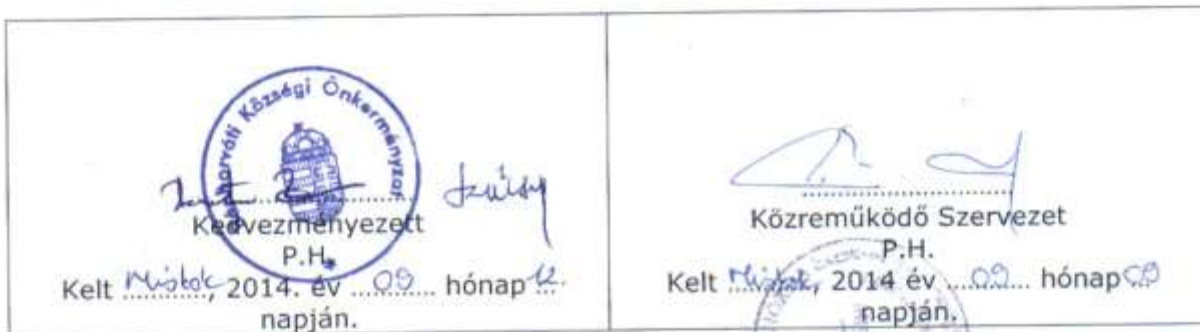 Községi Önkormányzat
Kedvezményezett
P.H.
Kelt Miskolc, 2014. év 09 hónap 12.
napján.
Közreműködő Szervezet
P.H.
Kelt Miskolc, 2014 év 09 hónap 09
napján.